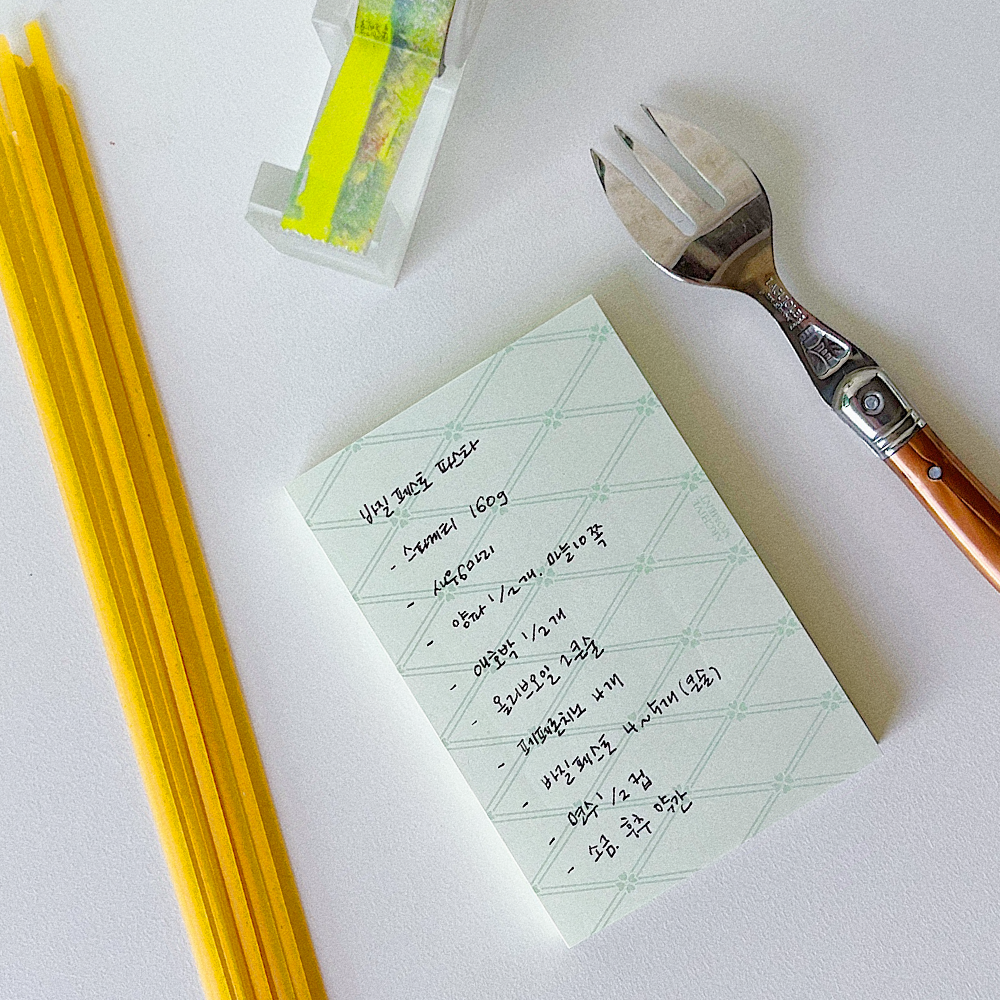 바질 페스토 파스타
- 스파게티 160g
- 새우6마리
- 양파 1/2개. 마늘10쪽
- 애호박 1/2개
- 올리브오일 2큰술
- 페페론치노 4개
- 바질페스토 4~5개 (큰술)
- 면수 1/2 컵
- 소금. 후추 약간